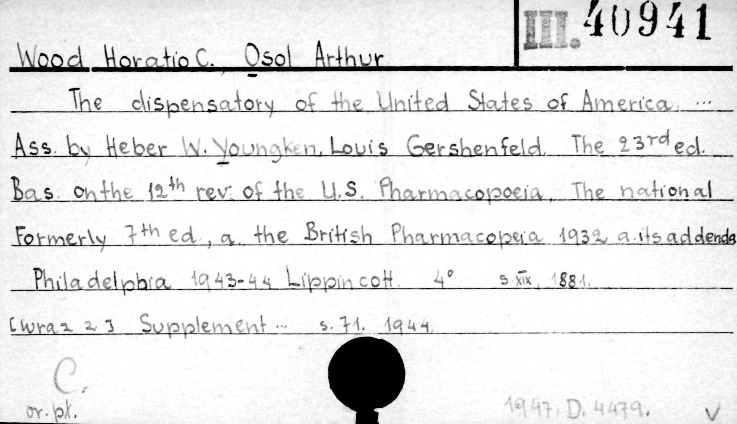 III. 40941
Wood Horatio C. Osol Arthur
The dispensatory of the United States of America. ...
Ass. by Heber W. Youngken, Louis Gershenfeld. The 23rd ed.
Bas. on the 12th rev. of the U.S. Pharmacopoeia, The national
Formerly 7th ed., a. the British Pharmacopeia 1932 a. its addenda
Philadelphia 1943-44 Lippincott. 4° s. XIX, 1881.
[wraz z] Supplement ... s. 71. 1944.
C.
or. pł.
1947. D. 4479. V